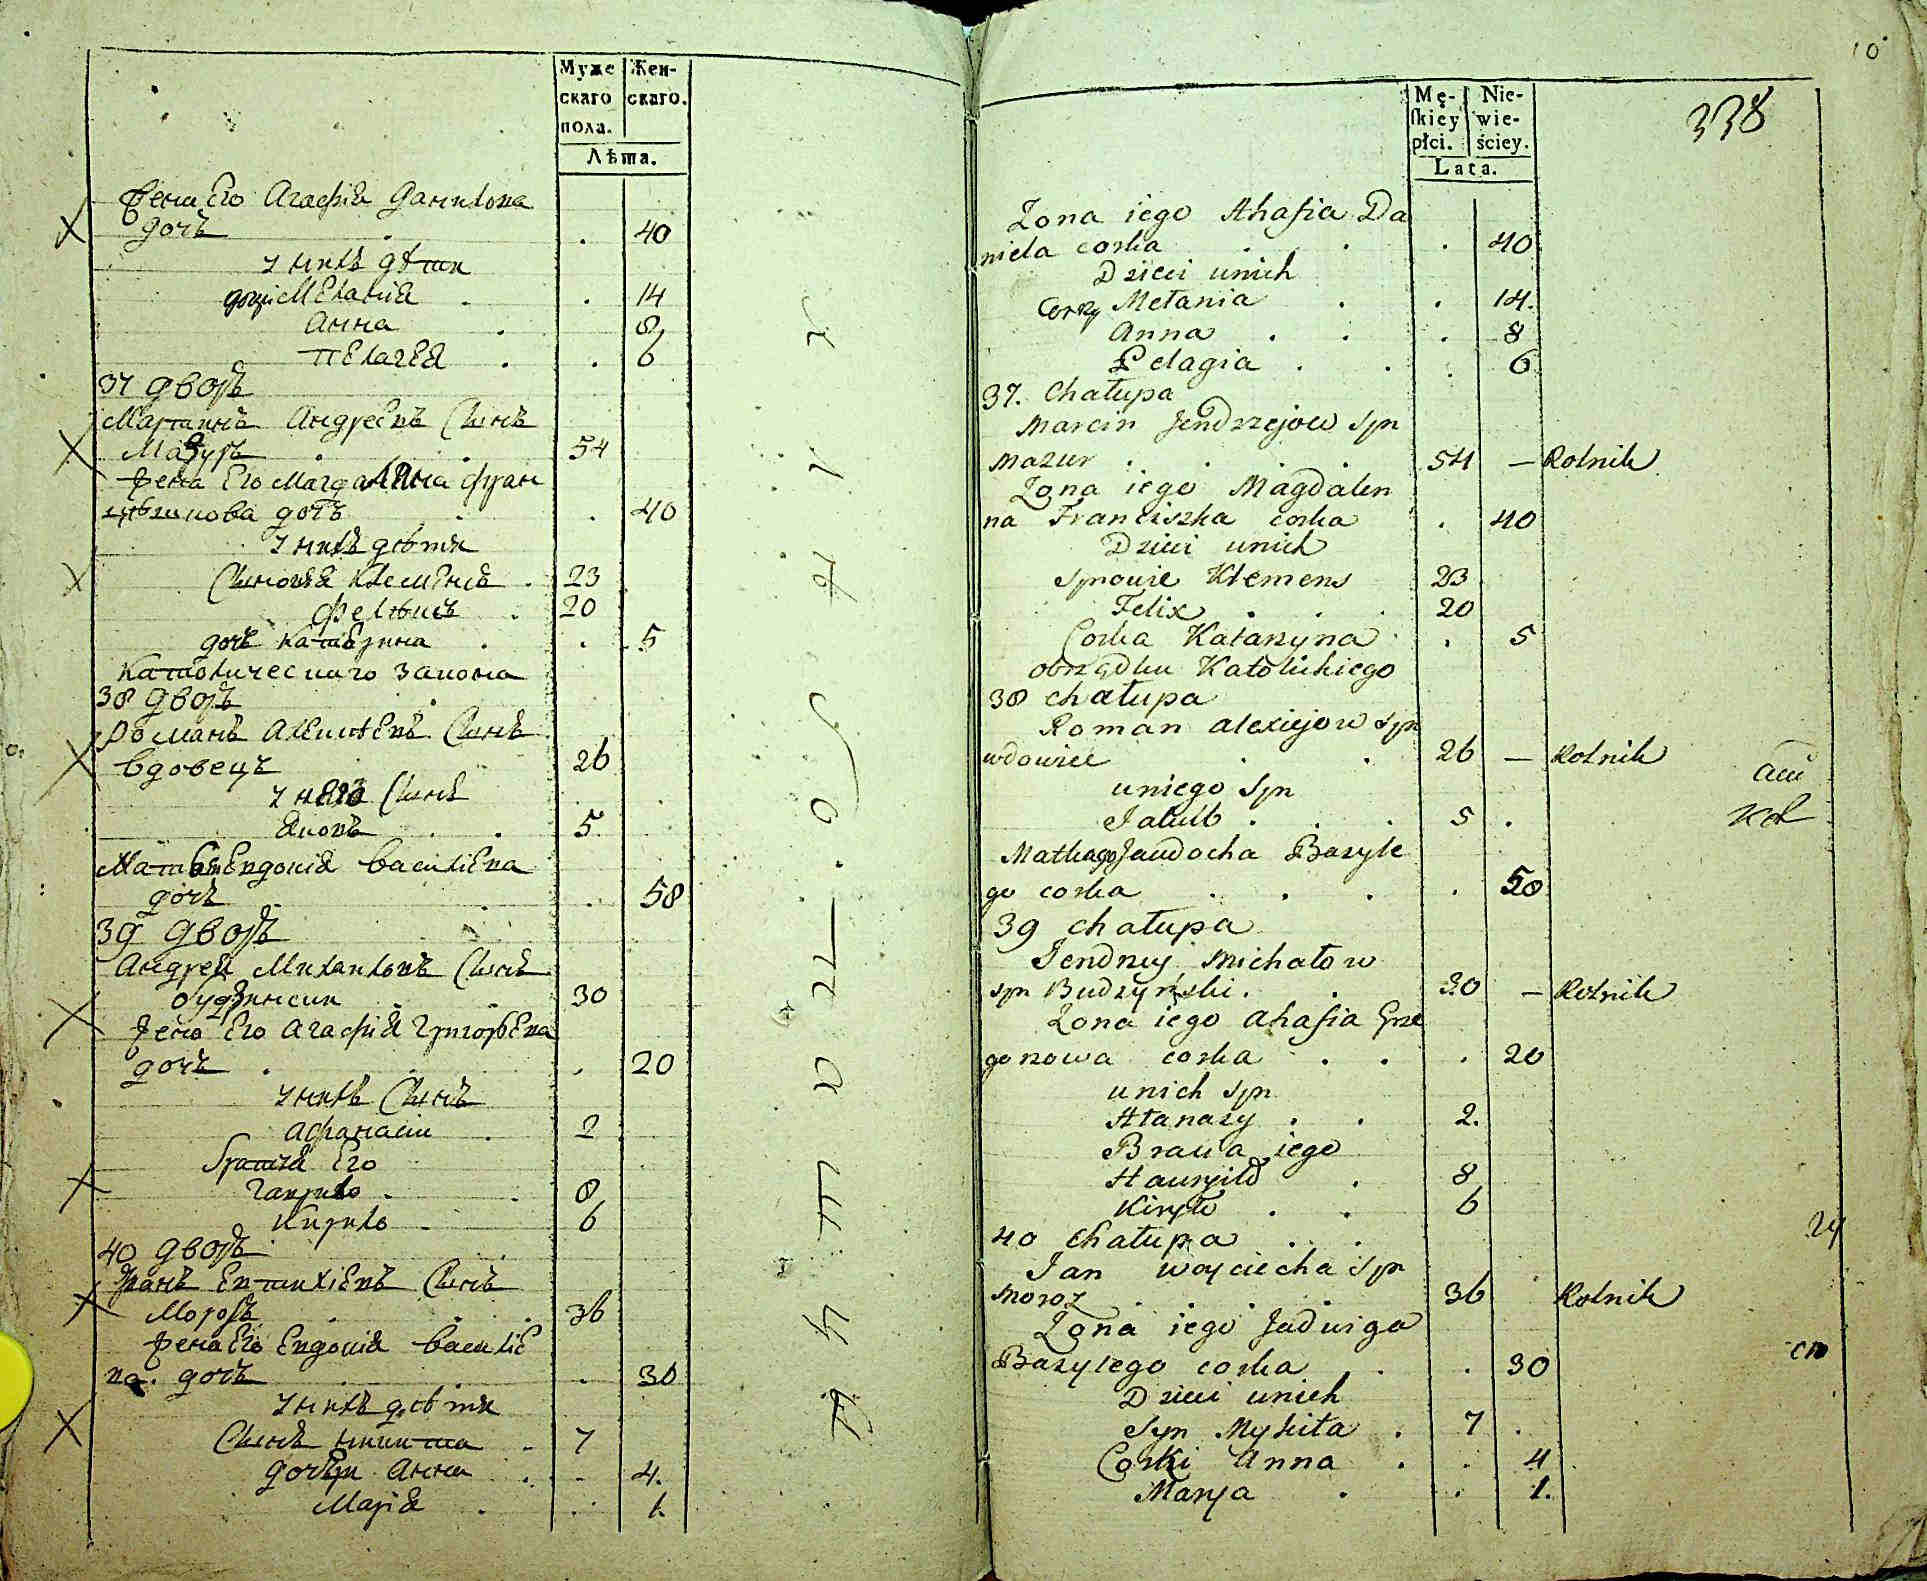 Муже
скаго
пола.
Жен-
скаго.
Лѣта.
жена Его Агафія Данилова
дочъ . 40
У нихъ дѣти
дочери Меланія . 14
Анна . 8
Пелагея . 6
37 дворъ
Мартинъ Андреевъ Сынъ
Мазуръ . 54
жена Его Магдалина Фран
цѣшкова дочъ . 40
У нихъ дѣти
Сыновья Клеменсъ . 23
Феликсъ . 20
дочъ Катерина . 5
Католическаго Закона
38 дворъ
Романъ Алексѣевъ Сынъ
Вдовецъ 26
У него Сынъ
Яковъ . 5
Мать Его Евдокія Василіева
дочъ . 58
39 дворъ
Андрей Михайловъ Сынъ
Будзински . 30
жена Его Агафія Григорьева
дочъ . 20
У нихъ Сынъ
Афанасіи . 2
братья Его
Гаврило . 8
Кирило . 6
40 дворъ
Иванъ Сынъ
Морозъ . 36
жена Его Евдокія Василіе
ва дочъ . 30
У нихъ дѣти
Сынъ Никита . 7
дочери Анна . 4.
Марія . 1.
10
338
Mę-
skiey
płci.
Nie-
wie-
ściey.
Lata.
Zona iego Ahafia Da
niela corka . 40
Dzieci unich
Corky Mełania . 14.
Anna . 8
Pelagia . 6
37. Chałupa
Marcin Jendrzejow Syn
Mazur . 54 — Rolnik
Zona iego Magdalen
na Franciszka corka . 40
Dzieci unich
Synowie Klemens 23
Felix . 20
Corka Katarzyna . 5
obrządku Katolickiego
38 chałupa
Roman alexiejow Syn
wdowiec . 26 — Rolnik
uniego Syn
Jakub . 5 .
Matka jego Jaudocha Bazyle
go corka . 58
39 chałupa
Jendrzey Michałow
syn Budzynski . 30 — Rolnik
Zona iego ahafia Grze
gorzowa corka . 20
unich syn
Atanazy . 2.
Bracia iego
Hauryło . 8
Kiryło . 6
40 Chałupa
Jan Woyciecha Syn
Moroz . 36 Rolnik
Zona iego Jadwiga
Bazylego corka . 30
Dzieci unich
Syn Mykita . 7 .
Corki Anna . 4
Marya . 1.